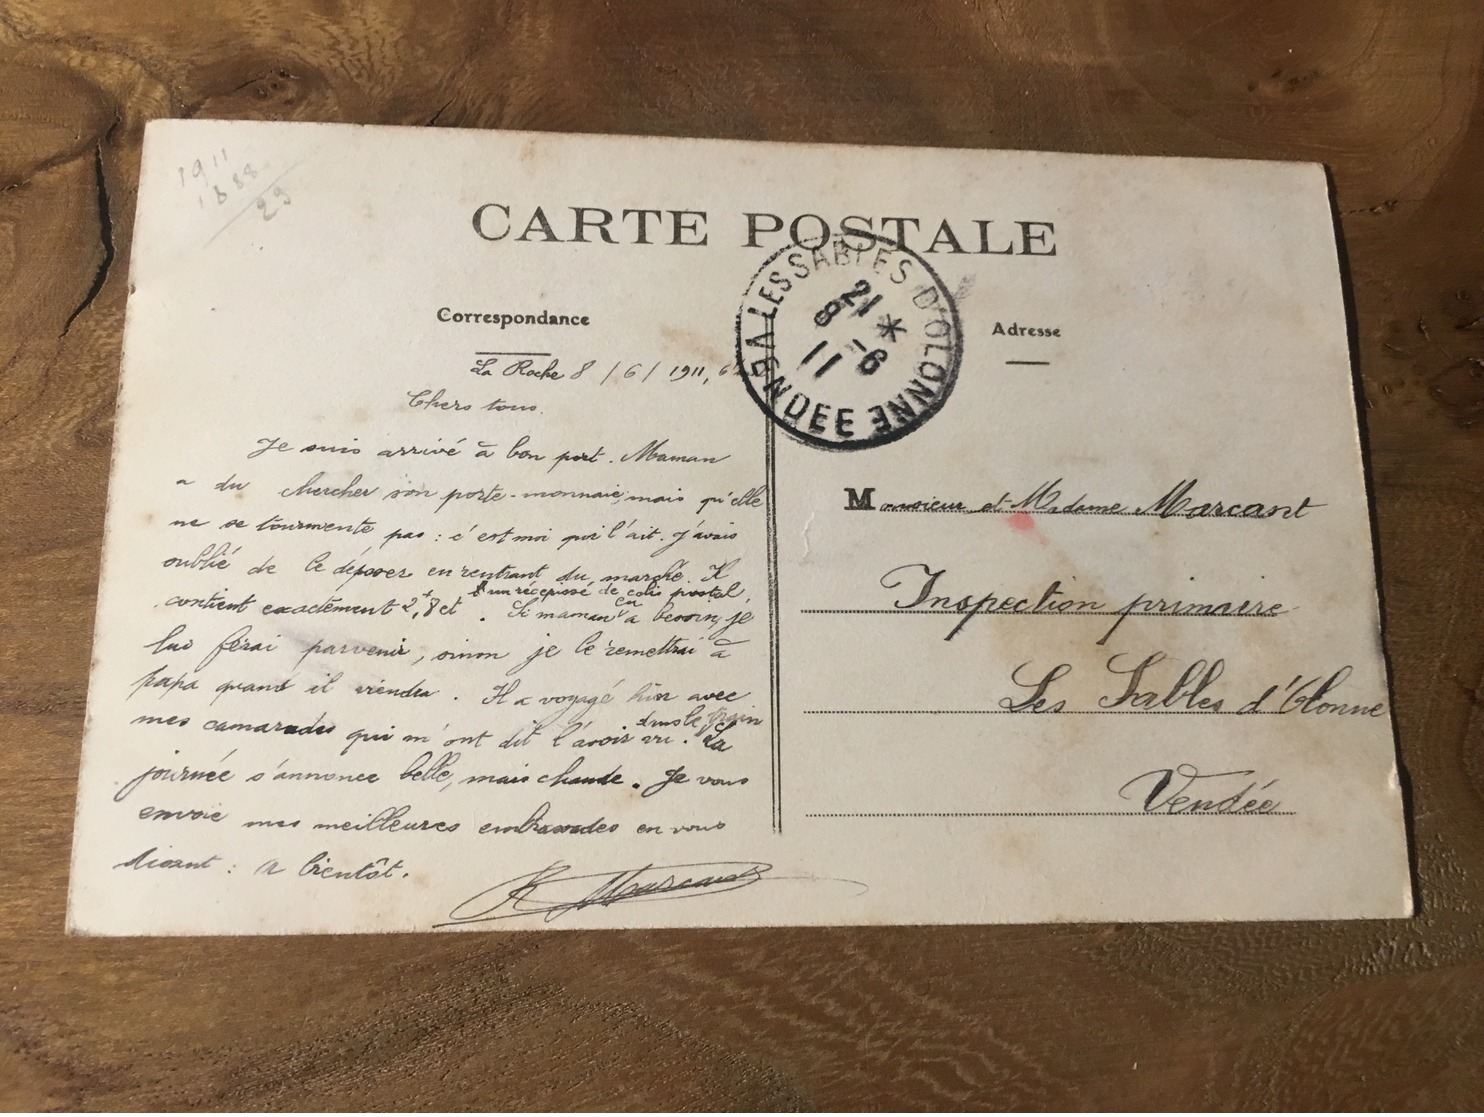 1911
1888
23
CARTE POSTALE
LES SABLES D'OLONNE
21 *
8 -6
11
VENDEE
Correspondance
Adresse
La Roche 8 / 6 / 1911, 6
Chers tous.
Je suis arrivé à bon port. Maman
a du chercher son porte-monnaie, mais qu'elle
ne se tourmente pas : c'est moi qui l'ait. J'avais
oublié de le déposer en rentrant du marché. Il
contient exactement 2,8 et un récépissé de colis postal.
Si maman en a besoin, je
lui ferai parvenir, sinon je le remettrai à
papa quand il viendra. Il a voyagé hier avec
mes camarades qui m'ont dit l'avoir vu dans le train. La
journée s'annonce belle, mais chaude. Je vous
envoie mes meilleures embrassades en vous
disant : a bientôt.
R Marcant
Monsieur et Madame Marcant
Inspection primaire
Les Sables d'Olonne
Vendée